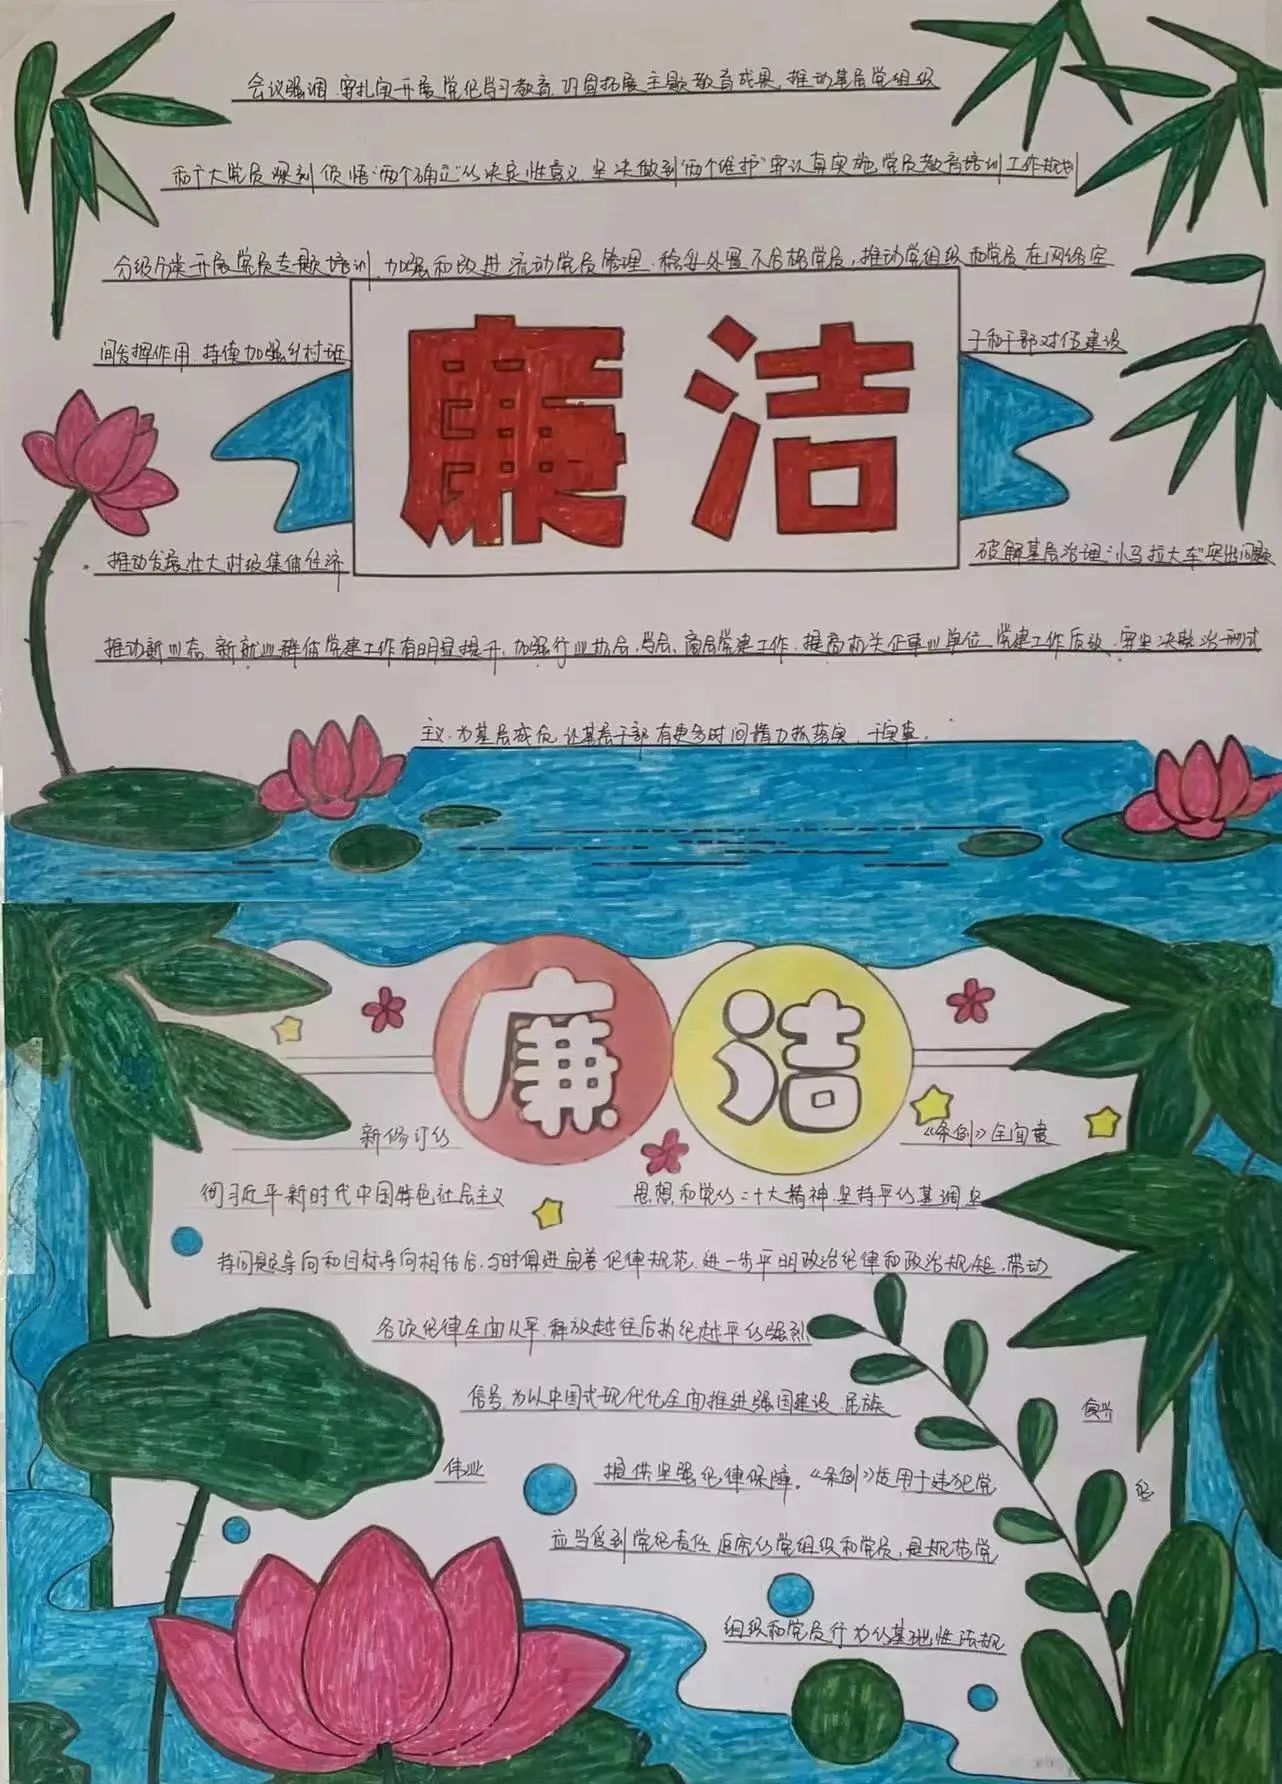 会议强调,要扎实开展党纪学习教育,巩固拓展主题教育成果,推动基层党组织
和广大党员深刻领悟“两个确立”的决定性意义,坚决做到“两个维护”要认真实施党员教育培训工作规划
分级分类开展党员专题培训,加强和改进流动党员管理,稳妥处置不合格党员,推动党组织和党员在网络空
间发挥作用.持续加强乡村班
子和干部对伍建设
廉洁
推动发展壮大村级集体经济
破解基层治理“小马拉大车”突出问题
推动新业态、新就业群体党建工作有明显提升,加强行业协会、学会、商会党建工作,提高机关企事业单位党建工作质效.要坚决整治形式
主义,为基层减负,让基层干部有更多时间精力抓落实,干实事.
廉洁
新修订的
《条例》全面贯
彻习近平新时代中国特色社会主义
思想和党的二十大精神,坚持严的基调,坚
持问题导向和目标导向相结合,与时俱进完善纪律规范,进一步严明政治纪律和政治规矩,带动
各项纪律全面从严,释放越往后执纪越严的强烈
信号,为以中国式现代化全面推进强国建设、民族
复兴
伟业
提供坚强纪律保障。《条例》适用于违犯党
纪
应当受到党纪责任追究的党组织和党员,是规范党
组织和党员行为的基础性法规